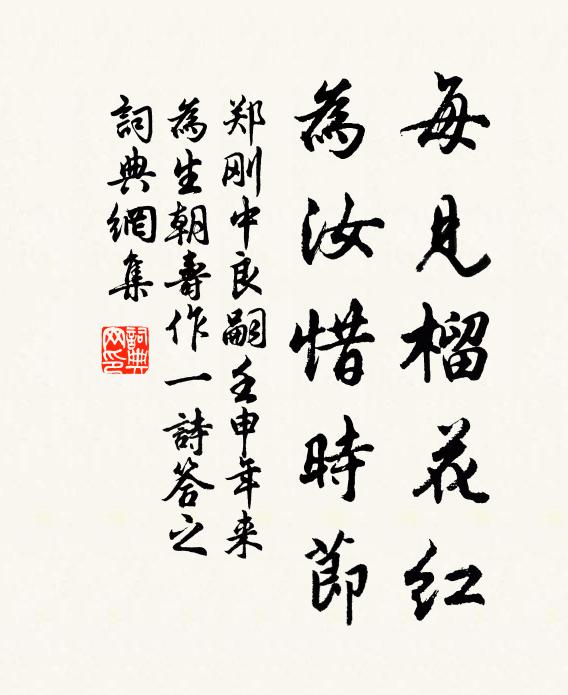 每見榴花紅
為汝惜時節
郑剛中良嗣壬申年来
為生朝壽作一詩答之
詞典網集
詞典
网印